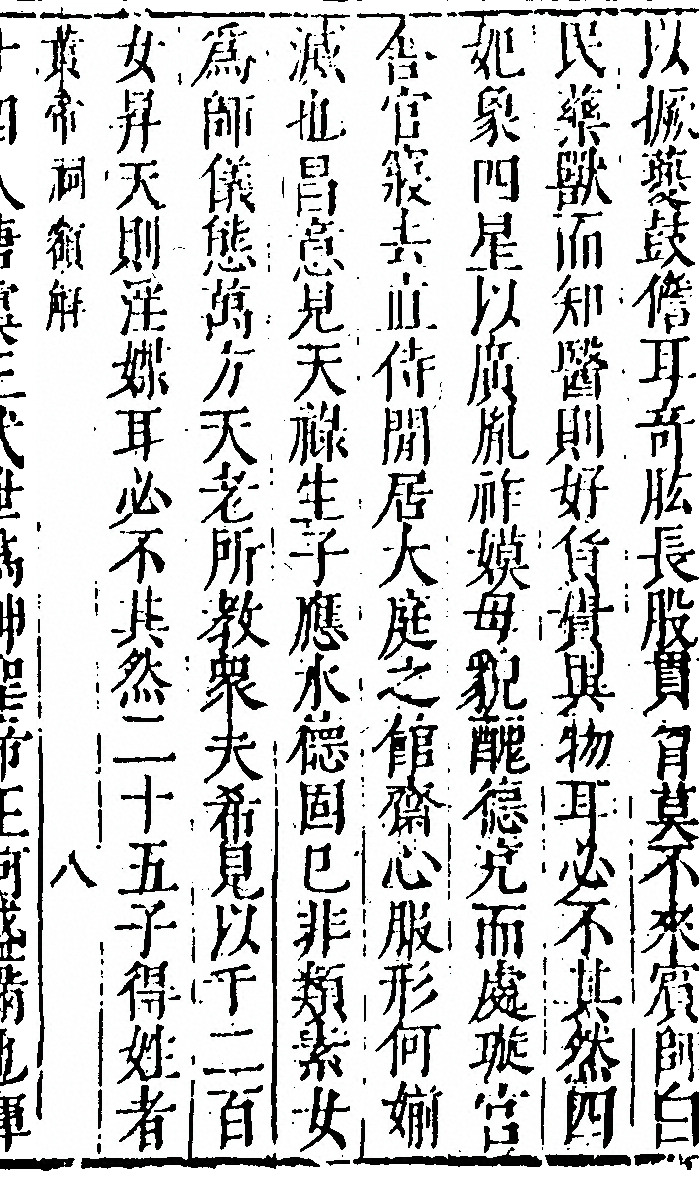 以撅夔鼓儋耳奇肱長股貫胷莫不來賓師白
民藥獸而知醫則好貨賷與物耳必不其然四
妃象四星以廣胤祚嫫母貌醜德充而處璇宮
舍官寢去直侍閒居大庭之館齋心服形何媊
減也昌意見天祿生子應水德固已非類素女
爲師儀態萬方天老所教衆夫希見以千二百
女昇天則淫媟耳必不其然二十五子得姓者
叢帝祠額解 八
十四人唐虞三代世爲神聖帝王何盛